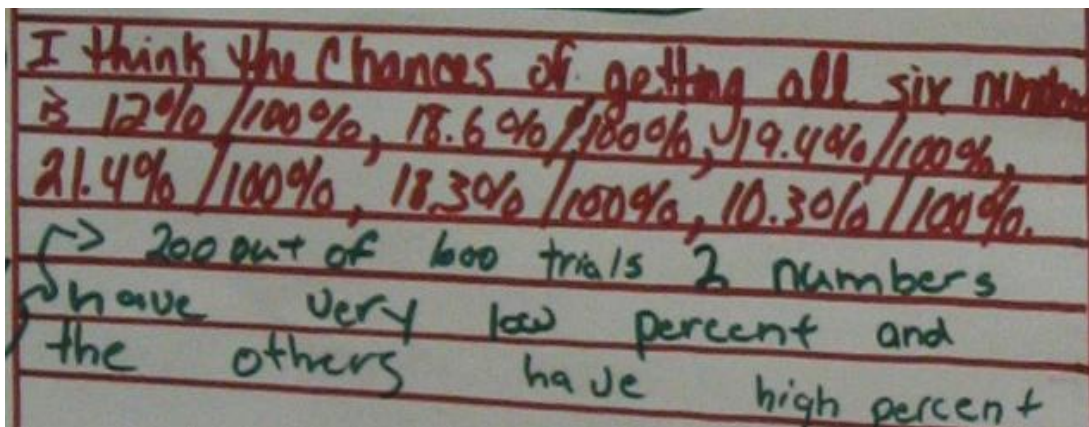 I think the chances of getting all six number
is 12%/100%, 18.6%/100%, 19.4%/100%,
21.4%/100%, 18.3%/100%, 10.3%/100%.
→ 200 out of 600 trials 2 numbers
have very low percent and
the others have high percent